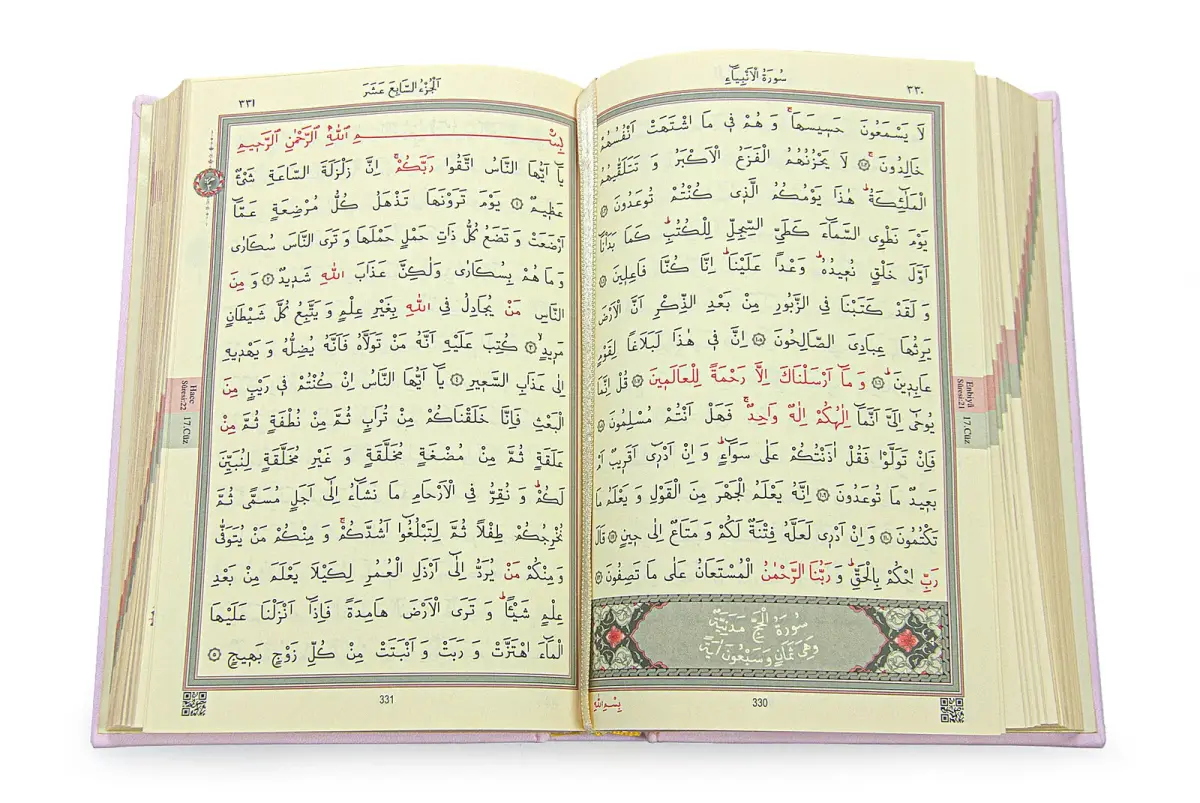 سُورَةُ الْاَنْبِيَاءِ
٣٣٠
لَا يَسْمَعُونَ حَسٖيسَهَاۚ وَ هُمْ فٖى مَا اشْتَهَتْ اَنْفُسُهُمْ
خَالِدُونَۚ ﴿١٠٢﴾ لَا يَحْزُنُهُمُ الْفَزَعُ الْاَكْبَرُ وَ تَتَلَقّٰيهُمُ
الْمَلٰٓئِكَةُۜ هٰذَا يَوْمُكُمُ الَّذٖى كُنْتُمْ تُوعَدُونَ ﴿١٠٣﴾
يَوْمَ نَطْوِى السَّمَٓاءَ كَطَىِّ السِّجِلِّ لِلْكُتُبِۜ كَمَا بَدَاْنَٓا
اَوَّلَ خَلْقٍ نُعٖيدُهُۜ وَعْدًا عَلَيْنَاۜ اِنَّا كُنَّا فَاعِلٖينَ ﴿١٠٤﴾
وَ لَقَدْ كَتَبْنَا فِى الزَّبُورِ مِنْ بَعْدِ الذِّكْرِ اَنَّ الْاَرْضَ
يَرِثُهَا عِبَادِىَ الصَّالِحُونَ ﴿١٠٥﴾ اِنَّ فٖى هٰذَا لَبَلَاغًا لِقَوْمٍ
عَابِدٖينَ ﴿١٠٦﴾ وَ مَٓا اَرْسَلْنَاكَ اِلَّا رَحْمَةً لِلْعَالَمٖينَ ﴿١٠٧﴾ قُلْ اِنَّمَا
يُوحٰٓى اِلَىَّ اَنَّمَٓا اِلٰهُكُمْ اِلٰهٌ وَاحِدٌۚ فَهَلْ اَنْتُمْ مُسْلِمُونَ ﴿١٠٨﴾
فَاِنْ تَوَلَّوْا فَقُلْ اٰذَنْتُكُمْ عَلٰى سَوَٓاءٍۜ وَ اِنْ اَدْرٖٓى اَقَرٖيبٌ اَمْ
بَعٖيدٌ مَا تُوعَدُونَ ﴿١٠٩﴾ اِنَّهُ يَعْلَمُ الْجَهْرَ مِنَ الْقَوْلِ وَ يَعْلَمُ مَا
تَكْتُمُونَ ﴿١١٠﴾ وَ اِنْ اَدْرٖى لَعَلَّهُ فِتْنَةٌ لَكُمْ وَ مَتَاعٌ اِلٰى حٖينٍ ﴿١١١﴾ قَالَ
رَبِّ احْكُمْ بِالْحَقِّۜ وَ رَبُّنَا الرَّحْمٰنُ الْمُسْتَعَانُ عَلٰى مَا تَصِفُونَ ﴿١١٢﴾
سُورَةُ الْحَجِّ مَدَنِيَّةٌ
وَهِىَ ثَمَانٍ وَسَبْعُونَ اٰيَةً
بِسْمِ اللّٰهِ
330
Enbiyâ
Sûresi:21
17.Cüz
اَلْجُزْءُ السَّابِعَ عَشَرَ
٣٣١
بِسْمِ اللّٰهِ الرَّحْمٰنِ الرَّحٖيمِ
يَٓا اَيُّهَا النَّاسُ اتَّقُوا رَبَّكُمْۚ اِنَّ زَلْزَلَةَ السَّاعَةِ شَىْءٌ
عَظٖيمٌ ﴿١﴾ يَوْمَ تَرَوْنَهَا تَذْهَلُ كُلُّ مُرْضِعَةٍ عَمَّٓا
اَرْضَعَتْ وَ تَضَعُ كُلُّ ذَاتِ حَمْلٍ حَمْلَهَا وَ تَرَى النَّاسَ سُكَارٰى
وَ مَا هُمْ بِسُكَارٰى وَلٰكِنَّ عَذَابَ اللّٰهِ شَدٖيدٌ ﴿٢﴾ وَ مِنَ
النَّاسِ مَنْ يُجَادِلُ فِى اللّٰهِ بِغَيْرِ عِلْمٍ وَ يَتَّبِعُ كُلَّ شَيْطَانٍ
مَرٖيدٍۙ ﴿٣﴾ كُتِبَ عَلَيْهِ اَنَّهُ مَنْ تَوَلَّاهُ فَاَنَّهُ يُضِلُّهُ وَ يَهْدٖيهِ
اِلٰى عَذَابِ السَّعٖيرِ ﴿٤﴾ يَٓا اَيُّهَا النَّاسُ اِنْ كُنْتُمْ فٖى رَيْبٍ مِنَ
الْبَعْثِ فَاِنَّا خَلَقْنَاكُمْ مِنْ تُرَابٍ ثُمَّ مِنْ نُطْفَةٍ ثُمَّ مِنْ
عَلَقَةٍ ثُمَّ مِنْ مُضْغَةٍ مُخَلَّقَةٍ وَ غَيْرِ مُخَلَّقَةٍ لِنُبَيِّنَ
لَكُمْۜ وَ نُقِرُّ فِى الْاَرْحَامِ مَا نَشَٓاءُ اِلٰٓى اَجَلٍ مُسَمًّى ثُمَّ
نُخْرِجُكُمْ طِفْلًا ثُمَّ لِتَبْلُغُٓوا اَشُدَّكُمْۚ وَ مِنْكُمْ مَنْ يُتَوَفّٰى
وَمِنْكُمْ مَنْ يُرَدُّ اِلٰٓى اَرْذَلِ الْعُمُرِ لِكَيْلَا يَعْلَمَ مِنْ بَعْدِ
عِلْمٍ شَيْـًٔاۜ وَ تَرَى الْاَرْضَ هَامِدَةً فَاِذَٓا اَنْزَلْنَا عَلَيْهَا
الْمَٓاءَ اهْتَزَّتْ وَ رَبَتْ وَ اَنْبَتَتْ مِنْ كُلِّ زَوْجٍ بَهٖيجٍ ﴿٥﴾
331
Hacc
Sûresi:22
17.Cüz